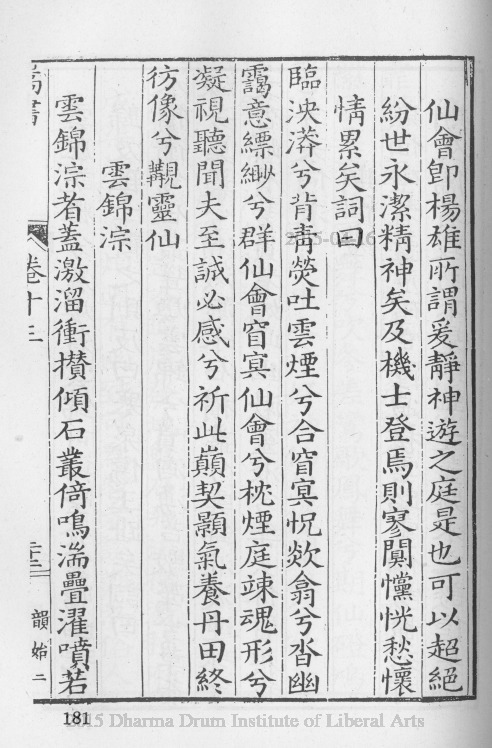 仙會卽楊雄所謂爰靜神遊之庭是也可以超絕
紛世永潔精神矣及機士登焉則寥闃戃恍愁懷
情累矣詞曰
臨泱漭兮背青熒吐雲煙兮合窅冥怳欻翕兮沓幽
靄意縹緲兮群仙會窅冥仙會兮枕煙庭竦魂形兮
凝視聽聞夫至誠必感兮祈此巔契顥氣養丹田終
彷像兮覯靈仙
雲錦淙
雲錦淙者蓋激溜衝攢傾石叢倚鳴湍疊濯噴若
卷十三
韻始二
181
2015 Dharma Drum Institute of Liberal Arts